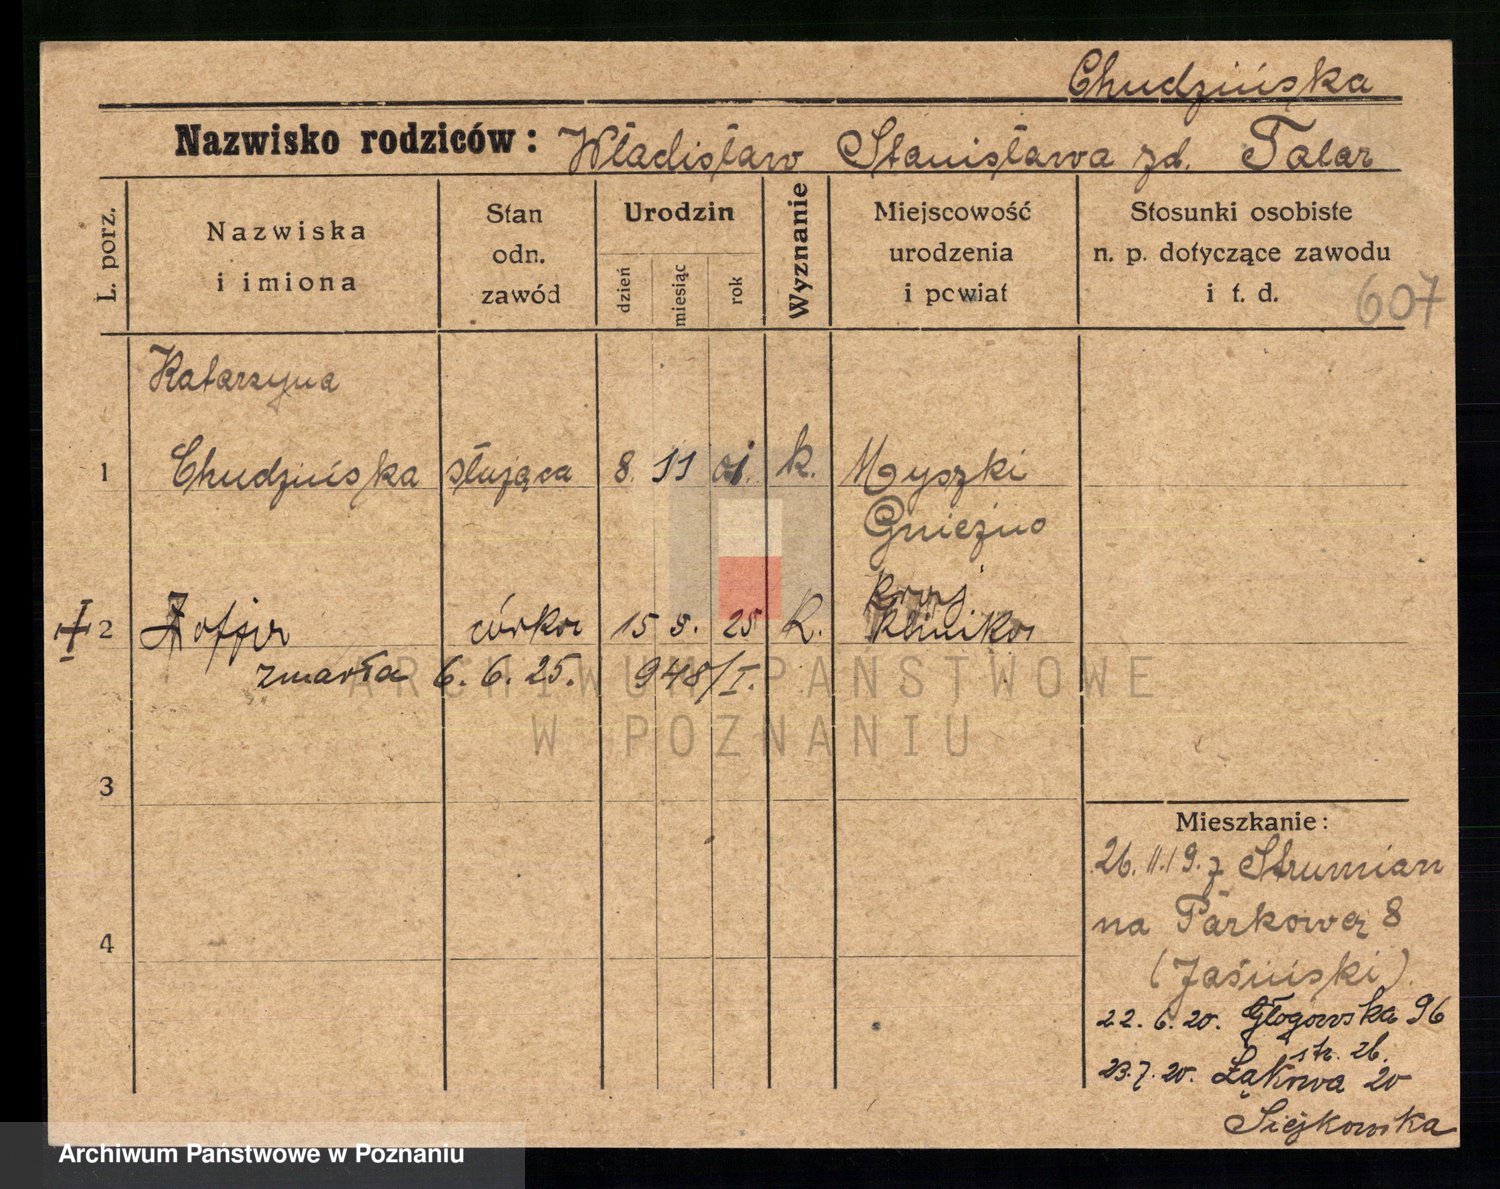 Chudzińska
Nazwisko rodziców: Władisław Stanisława zd. Talar
L. porz.
Nazwiska i imiona
Stan odn. zawód
Urodzin
dzień miesiąc rok
Wyznanie
Miejscowość urodzenia i powiat
Stosunki osobiste n. p. dotyczące zawodu i t. d.
607
Katarzyna
1 Chudzińska służąca 8. 11 01. k. Myszki
Gniezno
kraj
2 Zofja córka 15 5. 25 k. klinika
zmarła 6. 6. 25. 948/I.
ARCHIWUM PAŃSTWOWE
W POZNANIU
3
4
Mieszkanie:
26. 11. 19. z Strumian
na Parkowa 8
(Jasiński)
22. 6. 20. Głogowska 96
str. zb.
23. 7. 20. Łąkowa 20
Siejkowska
Archiwum Państwowe w Poznaniu